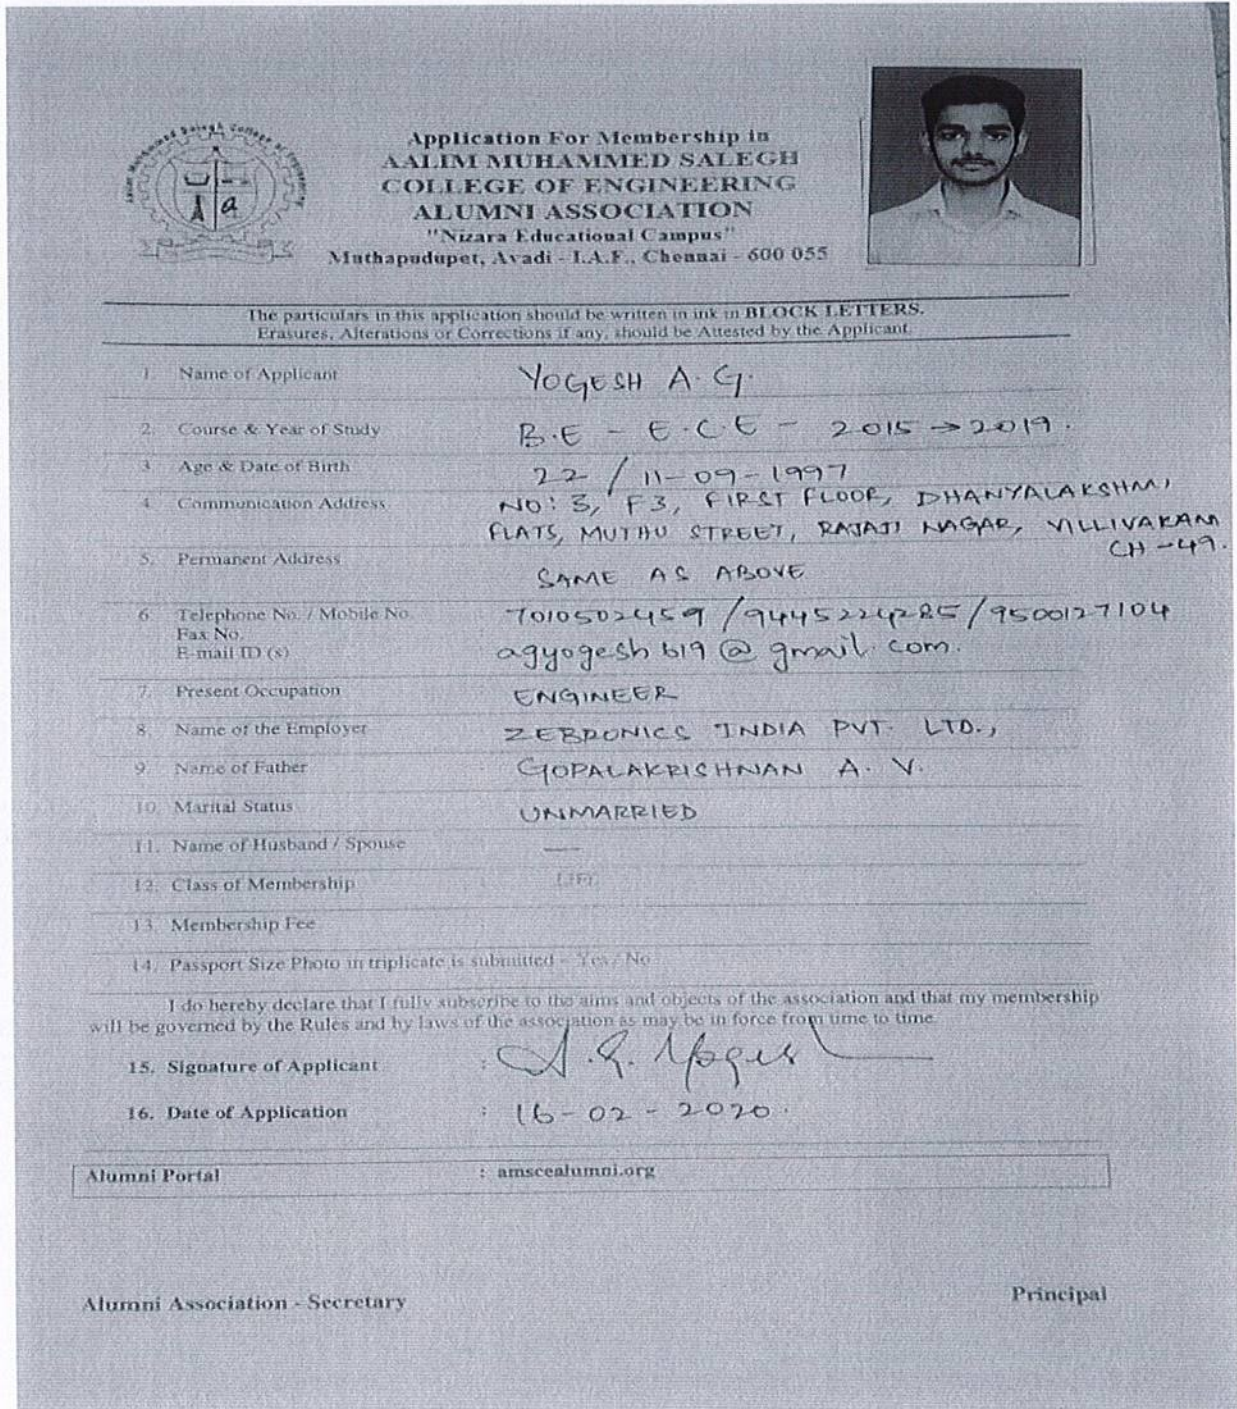 Application For Membership in
AALIM MUHAMMED SALEGH
COLLEGE OF ENGINEERING
ALUMNI ASSOCIATION
"Nizara Educational Campus"
Muthapudupet, Avadi - I.A.F., Chennai - 600 055
The particulars in this application should be written in ink in BLOCK LETTERS.
Erasures, Alterations or Corrections if any, should be Attested by the Applicant.
1. Name of Applicant : YOGESH A.G.
2. Course & Year of Study : B.E - E.C.E - 2015 → 2019.
3. Age & Date of Birth : 22 / 11-09-1997
4. Communication Address : NO: 3, F3, FIRST FLOOR, DHANYALAKSHMI
FLATS, MUTHU STREET, RAJAJI NAGAR, VILLIVAKAM
CH-49.
5. Permanent Address : SAME AS ABOVE
6. Telephone No. / Mobile No. : 7010502459 / 9445224285 / 9500127104
Fax No.
E-mail ID (s) agyogesh619@gmail.com.
7. Present Occupation : ENGINEER
8. Name of the Employer : ZEBRONICS INDIA PVT. LTD.,
9. Name of Father : GOPALAKRISHNAN A. V.
10. Marital Status : UNMARRIED
11. Name of Husband / Spouse : —
12. Class of Membership : LIFE
13. Membership Fee
14. Passport Size Photo in triplicate is submitted - Yes / No
I do hereby declare that I fully subscribe to the aims and objects of the association and that my membership
will be governed by the Rules and by laws of the association as may be in force from time to time.
15. Signature of Applicant : A.G. Yogesh
16. Date of Application : 16-02-2020.
Alumni Portal : amscealumni.org
Alumni Association - Secretary
Principal